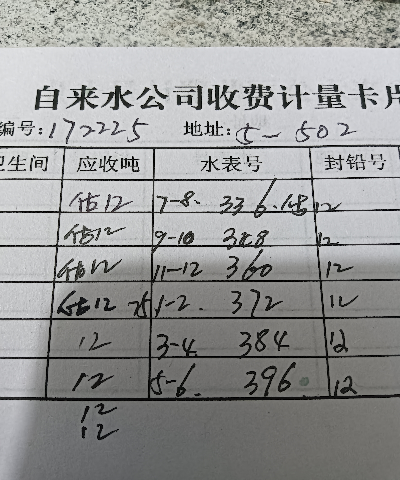 自来水公司收费计量卡片
编号:172225 地址:5-502
卫生间 应收吨 水表号 封铅号
估12 7-8. 336.估12
估12 9-10 348 12
估12 11-12 360 12
估12 25 1-2. 372 12
12 3-4 384 12
12 5-6. 396. 12
12
12